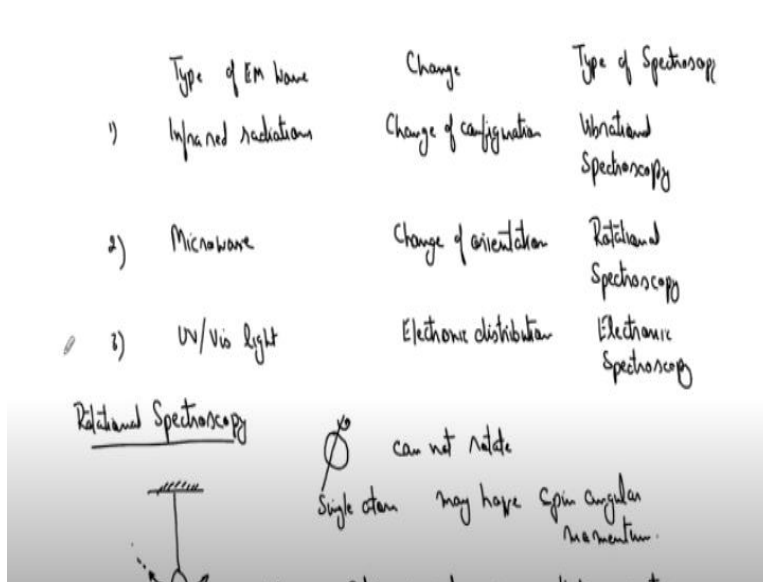 Type of EM Wave Change Type of Spectroscopy
1) Infra red radiations Change of configuration Vibrational
Spectroscopy
2) Microwave Change of orientation Rotational
Spectroscopy
3) UV/Vis light Electronic distribution Electronic
Spectroscopy
Rotational Spectroscopy
can not rotate
Single atom may have spin angular
momentum.